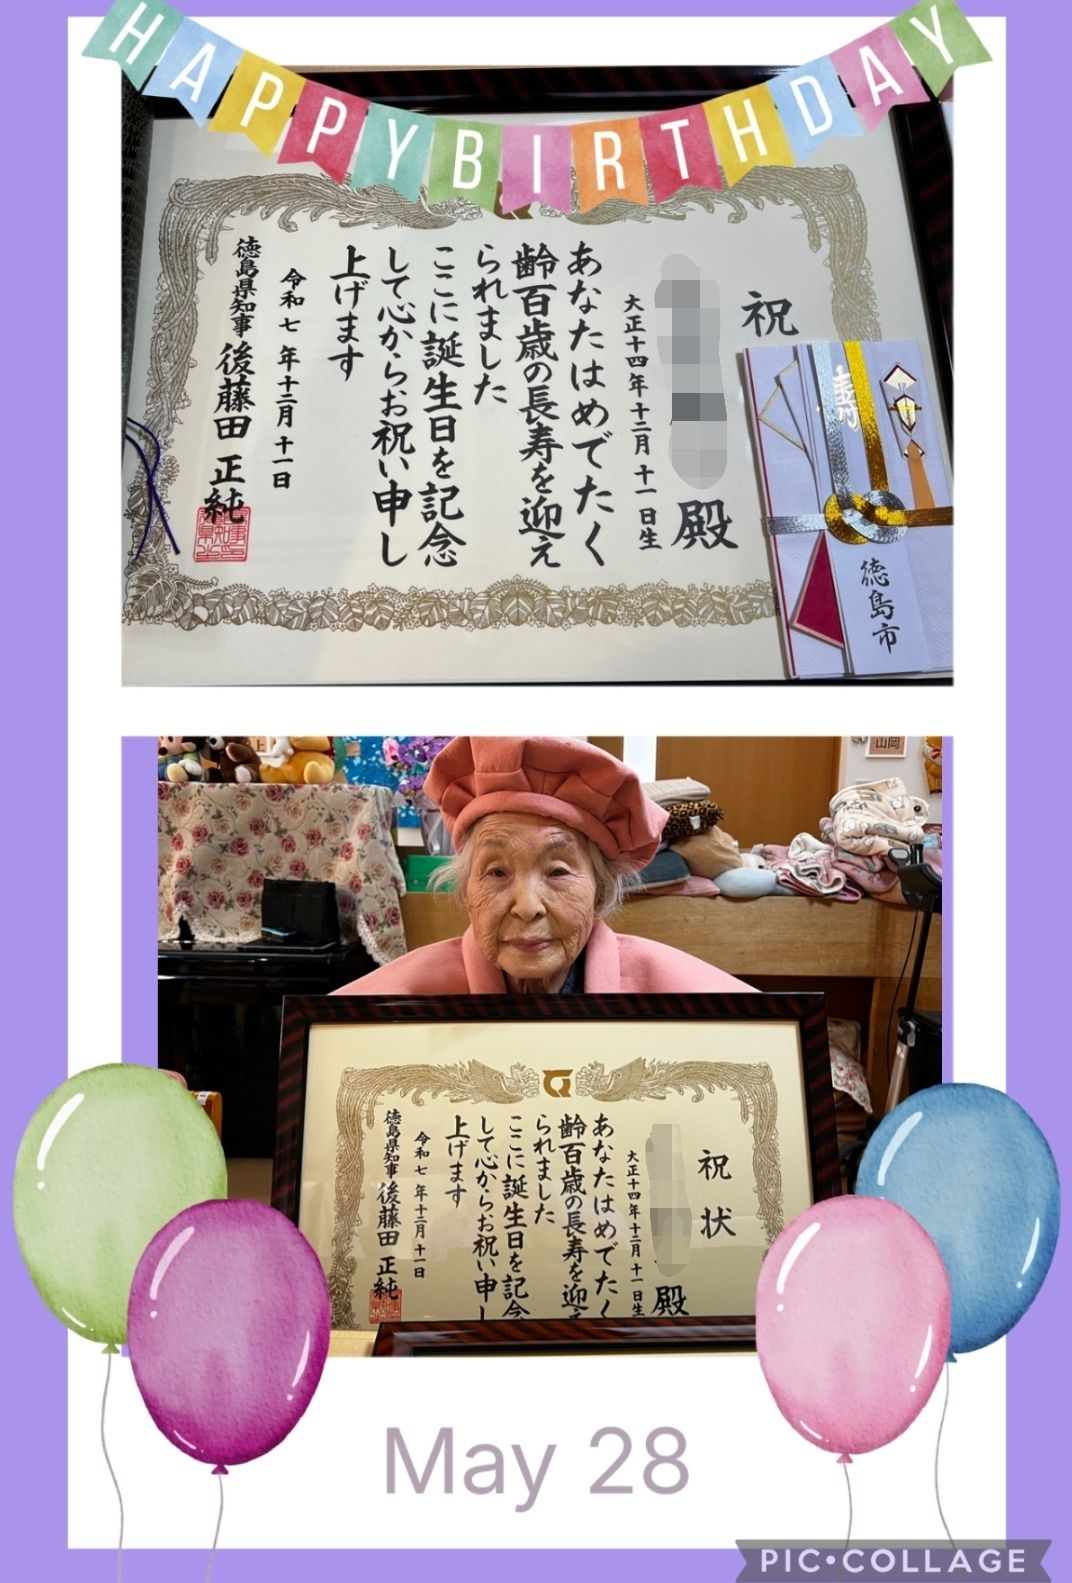 HAPPY BIRTHDAY
祝
殿
大正十四年十二月十一日生
あなたはめでたく
齢百歳の長寿を迎え
られました
ここに誕生日を記念
して心からお祝い申し
上げます
令和七年十二月十一日
徳島県知事 後藤田 正純
寿
徳島市
山岡
上
祝状
殿
大正十四年十二月十一日生
あなたはめでたく
齢百歳の長寿を迎え
られました
ここに誕生日を記念
して心からお祝い申し
上げます
令和七年十二月十一日
徳島県知事 後藤田 正純
May 28
PIC•COLLAGE